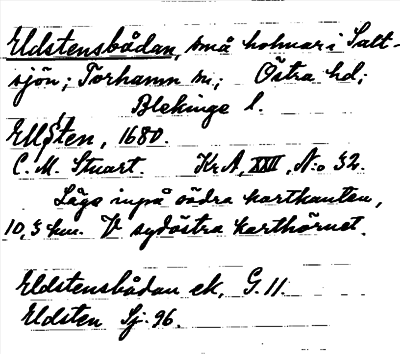 Eldstensbådan, små holmar i Salt-
sjön; Torhamn sn; Östra hd;
Blekinge l.
Ellsten, 1680.
C. M. Stuart. Kr A, XXII, No 32.
Lägs inpå södra kartkanten,
10,3 km. V sydöstra karthörnet.
Eldstensbådan ek, G. 11.
Eldsten Sj. 96.